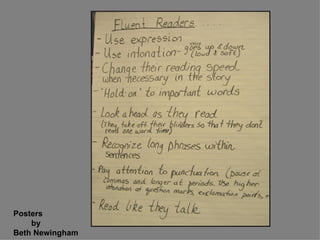 Fluent Readers .....
- Use expression
- Use intonation - voice goes up & down
(loud & soft)
- Change their reading speed
when necessary in the story
- "Hold on" to important words
- Look ahead as they read
(They take off their blinders so that they don't
read one word time)
- Recognize long phrases within
sentences
- Pay attention to punctuation (pause at
commas and longer at periods. Use higher
intonation at question marks, exclamation points,
- Read like they talk
Posters
by
Beth Newingham